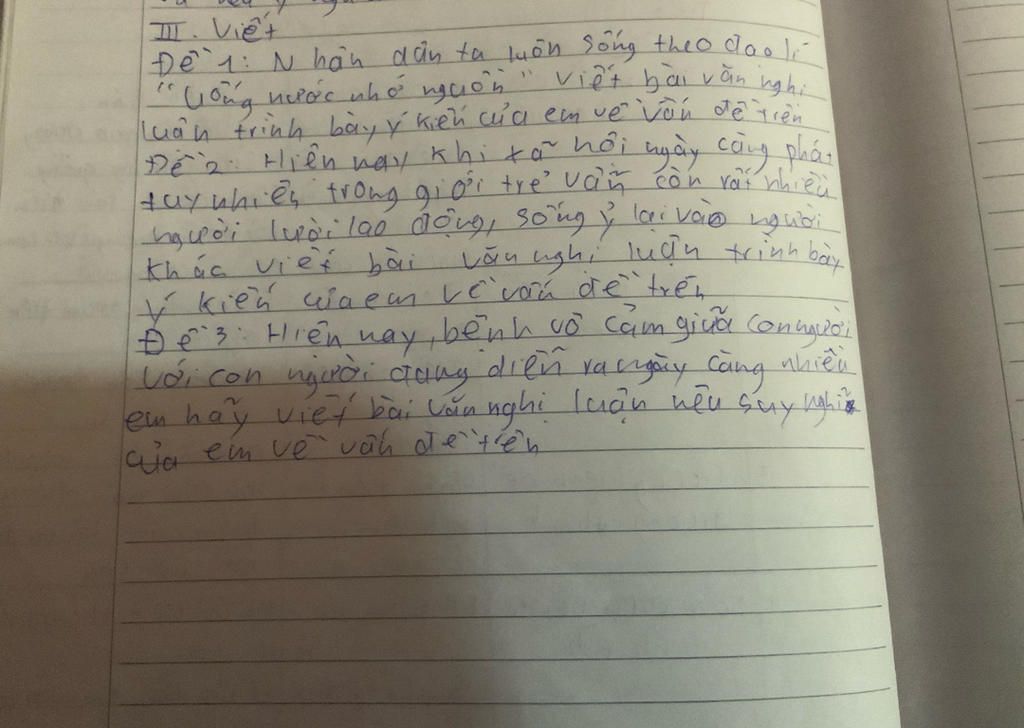 III. Viết
Đề 1: Nhân dân ta luôn sống theo đạo lí
"Uống nước nhớ nguồn" viết bài văn nghị
luận trình bày ý kiến của em về vấn đề trên
Đề 2: Hiện nay khi xã hội ngày càng phát
tuy nhiên trong giới trẻ vẫn còn rất nhiều
người lười lao động, sống ỷ lại vào người
khác viết bài văn nghị luận trình bày
ý kiến của em về vấn đề trên
Đề 3: Hiện nay, bệnh vô cảm giữa con người
với con người đang diễn ra ngày càng nhiều
em hãy viết bài văn nghị luận nêu suy nghĩ
của em về vấn đề trên